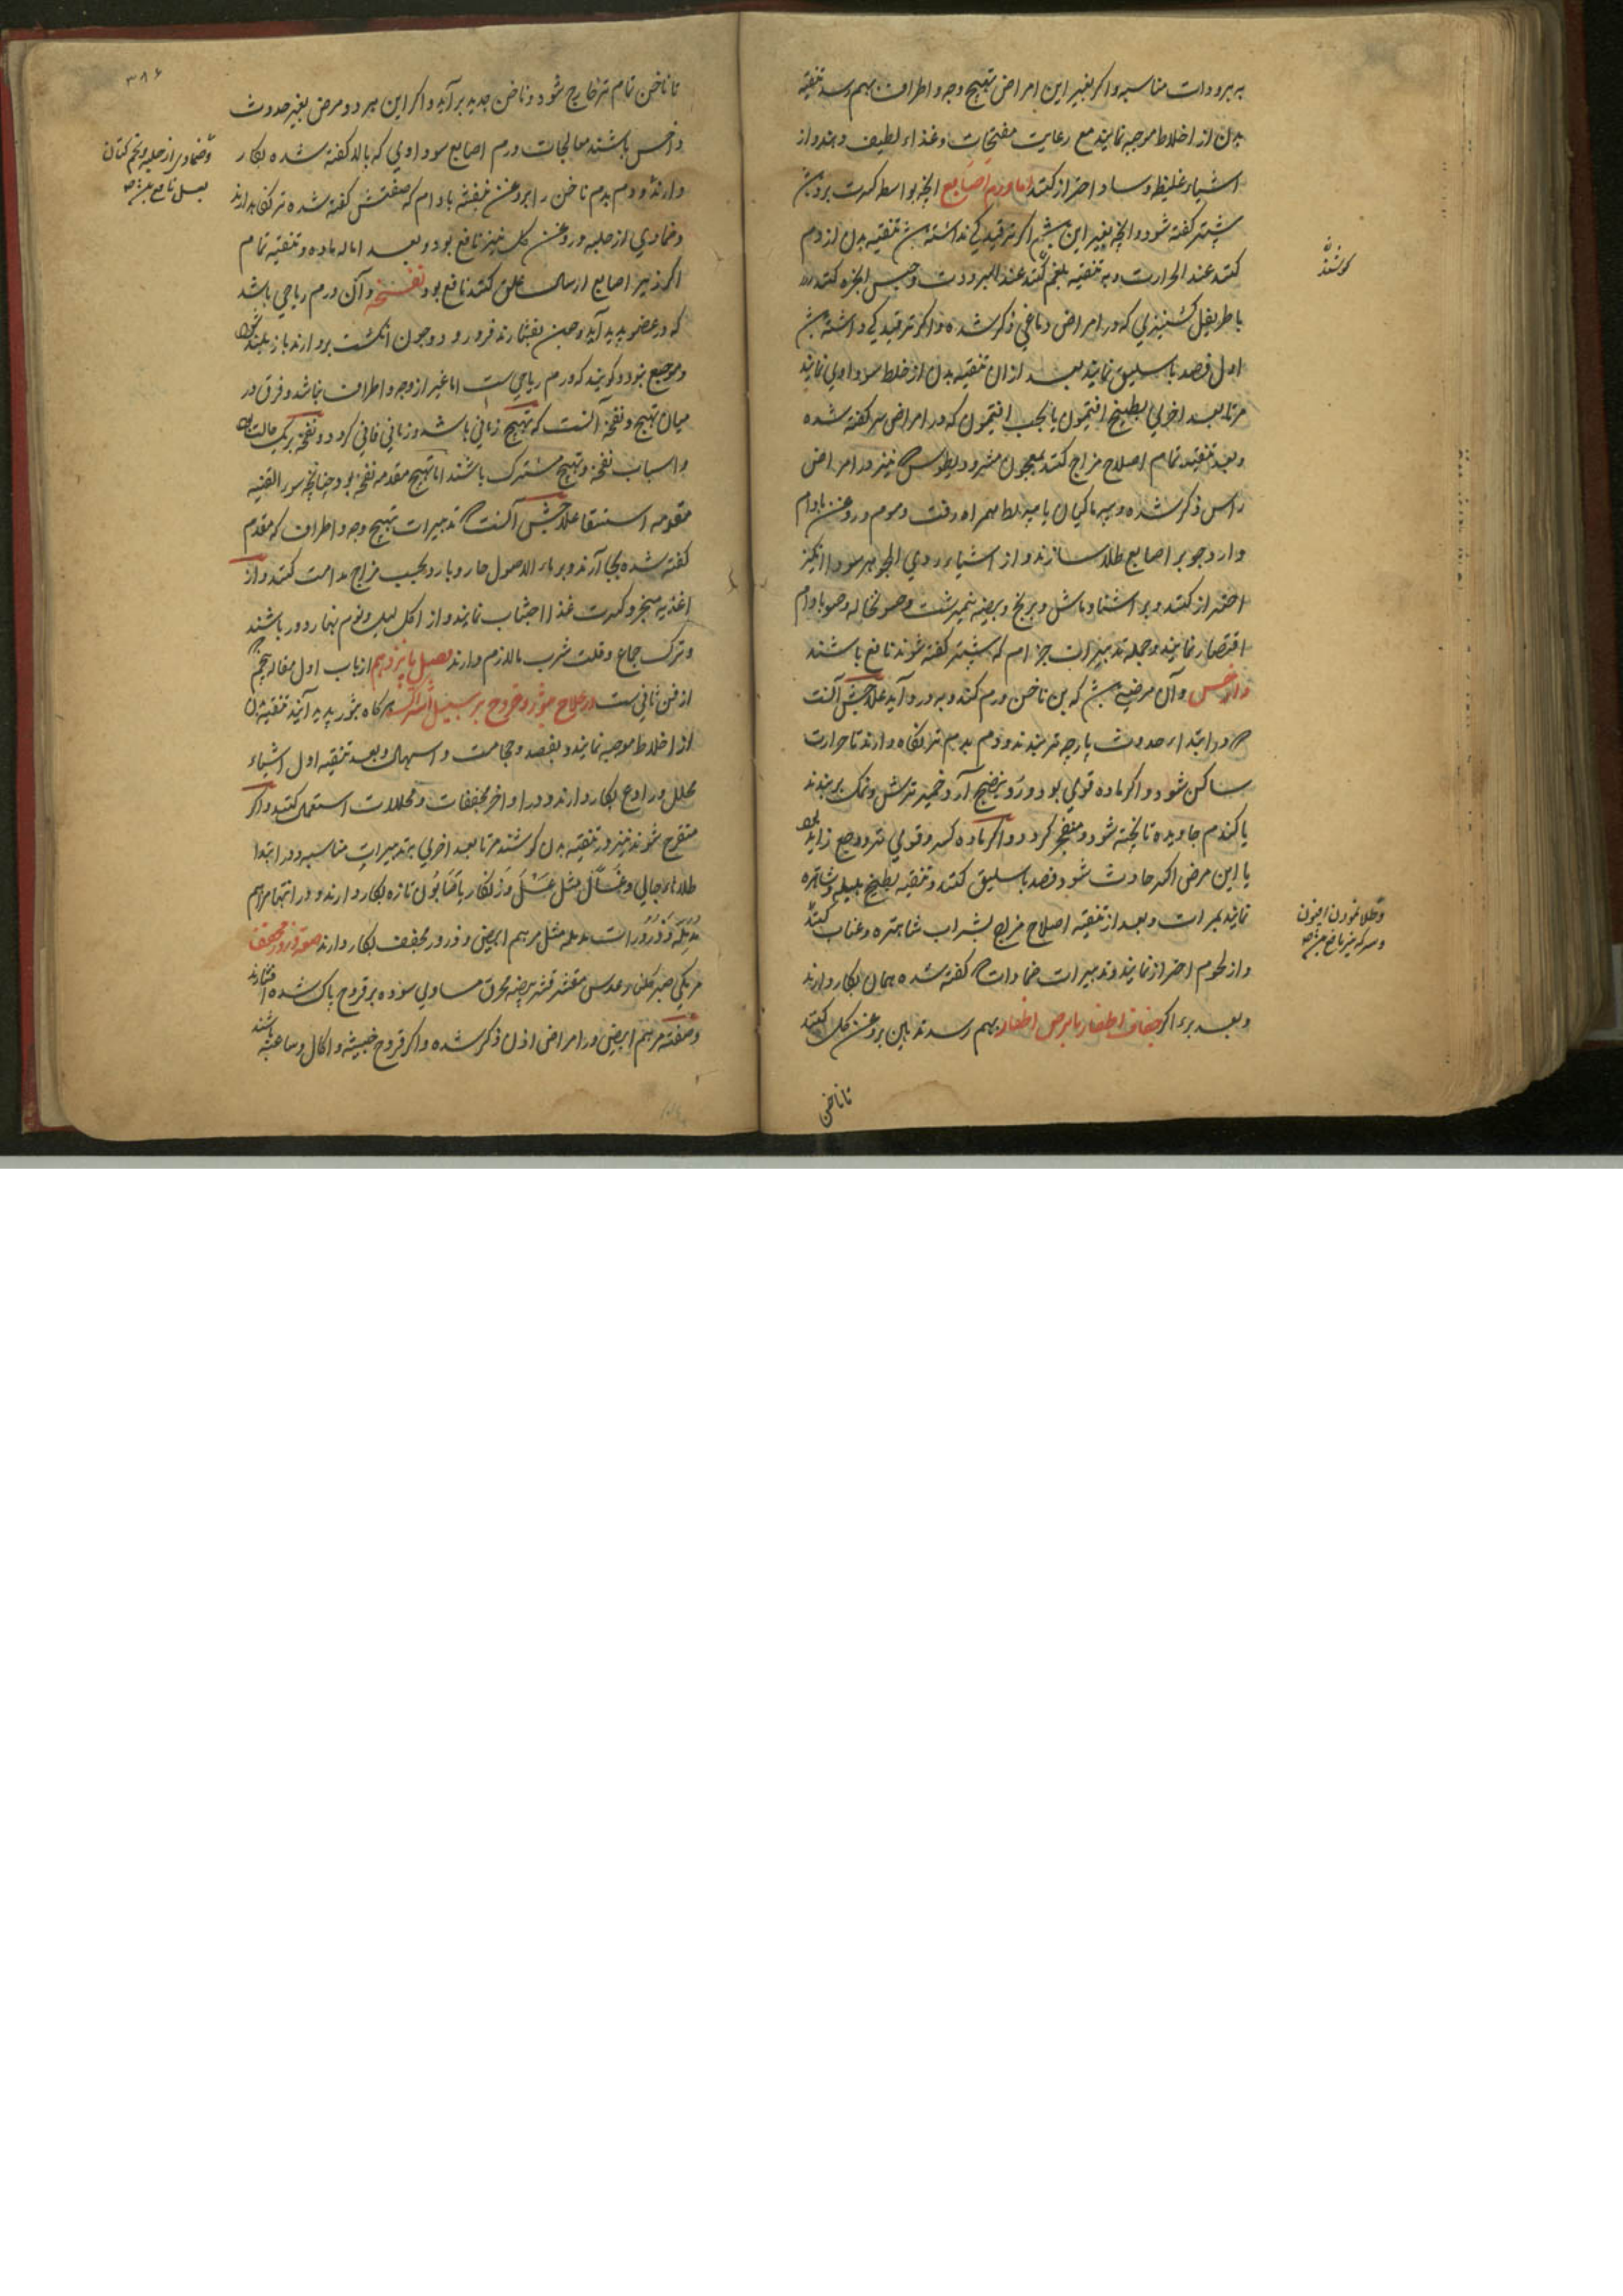 به برودات مناسبه و اکر بغیر این امراض تهیج وجه و اطراف بهم رسد تنقیه
بدن از اخلاط موجبه نمایند مع رعایت مفتحات و غذاء لطیف و هند و از
اشیاء غلیظ و ساد احتراز کنند اما ورم اصابع انچه بواسطه کهربت برودت
پیشتر کفته شود و انچه بغیر این باشد اکر ترقیدکی نداشته باشد تنقیه بدن از دم
کنند عند الحرارت و به تنقیه بلغم کنند عند البرودت و حبس ابخره کنند
کوشند
باطریفل کشنیزی که در امراض دماغی ذکر شده و اکر ترقیدکی داشته باشد
اول فصد باسلیق نمایند بعد از ان تنقیه بدن از خلط سوداوی نمایند
مرتا بعد اخری بطبیخ افتیمون یا بحب افتیمون که در امراض سر کفته شده
و بعد تنقیه تمام اصلاح مزاج کنند بمعجون مشرودیطوس که نیز در امراض
راس ذکر شده و پیه ماکیان یا پیه بط همراه زفت و موم و روغن بادام
و ارد جو بر اصابع طلا سازند و از اشیاء ردی الجوهر سودا انکیز
احتراز کنند و بر اشنا و ماش و برنج و بیضه نیمرشت و حسو نخاله و حسو بادام
اقتصار نمایند و جمله تدبیرات جذام که پیشتر کفته شوند نافع باشند
داخس و آن مرضی باشد که بن ناخن ورم کند و بدرد آید علاجش آنست
که در ابتداء حدوث پارچه تر بندند و دم بدم تر نکاه دارند تا حرارت
ساکن شود و اکر ماده قوی بود و رو بنضج آرد خمیر ترش و نمک بر بندند
یا کندم جاویده تا پخته شود و منفجر کردد و اکر ماده کسر و قوی تر و وجع زاید بود
یا این مرض اکثر حادث شود فصد باسلیق کنند و تنقیه بطبیخ هلیله و شاهتره
نمایند بمرات و بعد از تنقیه اصلاح مزاج بشراب شاهتره و عناب کنند
و طلا نمودن افیون
و سرکه نیز نافع باشد
و از لحوم احتراز نمایند و تدبیرات ضمادات که کفته شده همان بکار دارند
و بعد برء اکر جفاف اظفار یا برص اظفار بهم رسد تدهین بروغن کل کنند
تا ناخن
۳۸۶
تا ناخن تمام تر خارج شود و ناخن جدید بر آید و اکر این هر دو مرض بغیر حدوث
داخس باشند معالجات ورم اصابع سوداوی که بالا کفته شده بکار
و ضمادی از حلبه و تخم کتان
بعسل نافع باشد
دارند و دم بدم ناخن را بروغن بنفشه بادام که صفتش کفته شده تر نکاه دارند
و ضمادی از حلبه و روغن کل نیز نافع بود و بعد اماله ماده و تنقیه تمام
اکر زیر اصابع ارسال علق کنند نافع بود نفخه و آن ورم ریاحی باشد
که در عضو پدید آید و حین بفشارند فرو رود و چون انکشت بردارند باز بلند شود
و موجع نبود و کویند که ورم ریاحی ست اما غیر از وجه و اطراف نباشد و فرق در
میان تهیج و نفخه آنست که تهیج زمانی باشد و زمانی فانی کردد و نفخه بر یک حالت بود
و اسباب نفخه و تهیج مشترک باشند اما تهیج مقدمه نفخه بود چنانچه سوء القنیه
مقدمه استسقا علاجش آنست که تدبیرات تهیج وجه و اطراف که مقدم
کفته شده بجا آرند و بر ماء الاصول حار و بارد بحسب مزاج مداومت کنند و از
اغذیه مبخر و کثرت غذا اجتناب نمایند و از اکل لیل و نوم نهار دور باشند
و ترک جماع و قلت شرب ما لازم دارند فصل پانزدهم از باب اول مقاله پنجم
از فن ثانی ست در علاج بثور و قروح بر سبیل اشتراک هر کاه بثور پدید آیند تنقیه بدن
از اخلاط موجبه نمایند و بفصد و حجامت و اسهال و بعد تنقیه اول اشیاء
محلل و رادع بکار دارند و در اواخر مجففات و محللات استعمال کنند و اکر
متقرح شوند نیز در تنقیه بدن کوشند مرتا بعد اخری بتدبیرات مناسبه و در ابتدا
طلاء جالی و غسال مثل عسل و زنکار یا صابون تازه بکار دارند و در انتها مراهم
مدمله و ذرورات مدمله مثل مرهم ابیض و ذرور مجفف بکار دارند صفة ذرور مجفف
مر مکی صبر کلنار عدس مقشر قشر بیضه محرق مساوی سوده بر قروح پاک شده افشانند
و صفته مرهم ابیض در امراض اذن ذکر شده و اکر قروح خبیثه و اکال و ساعیه باشند